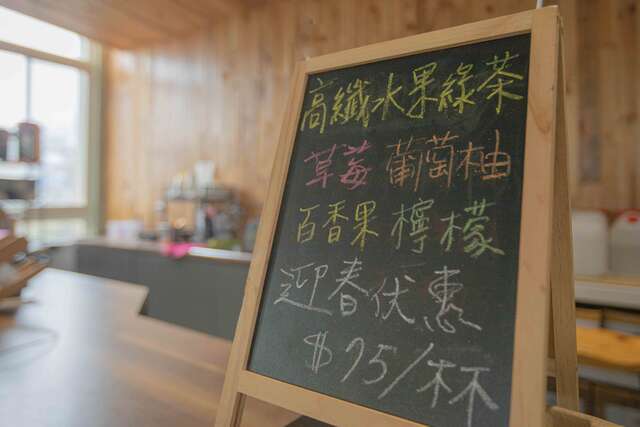 高纖水果綠茶
草莓 葡萄柚
百香果 檸檬
迎春优惠
$75/杯